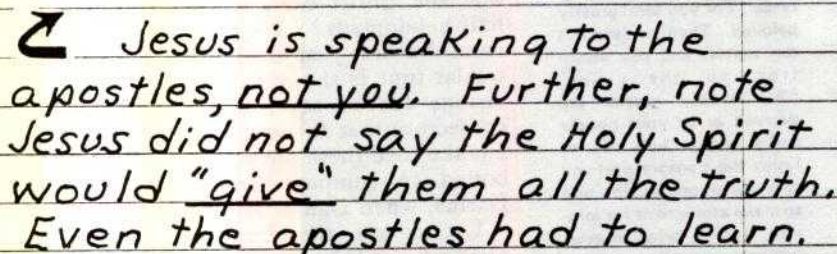 Jesus is speaking to the
apostles, not you. Further, note
Jesus did not say the Holy Spirit
would "give" them all the truth.
Even the apostles had to learn.